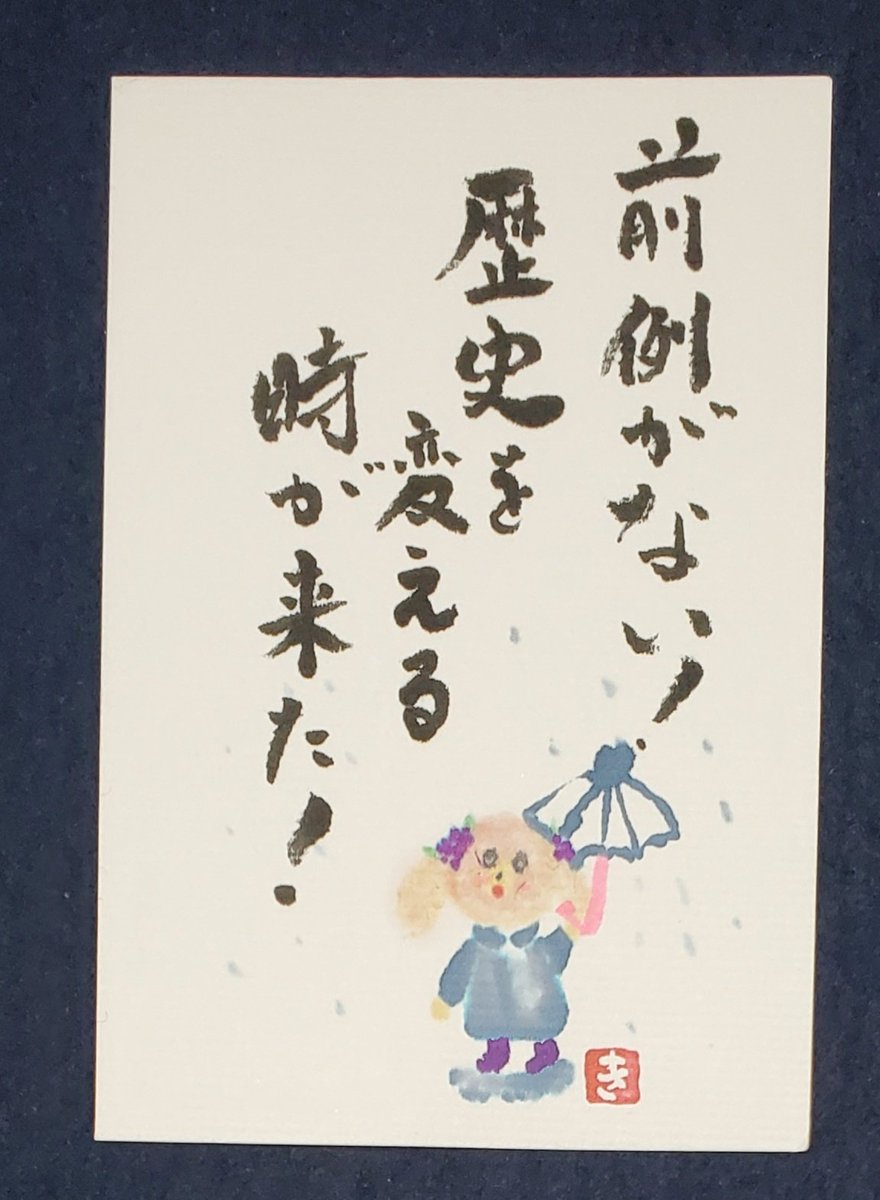 前例がない!
歴史を
変える
時が来た!
き